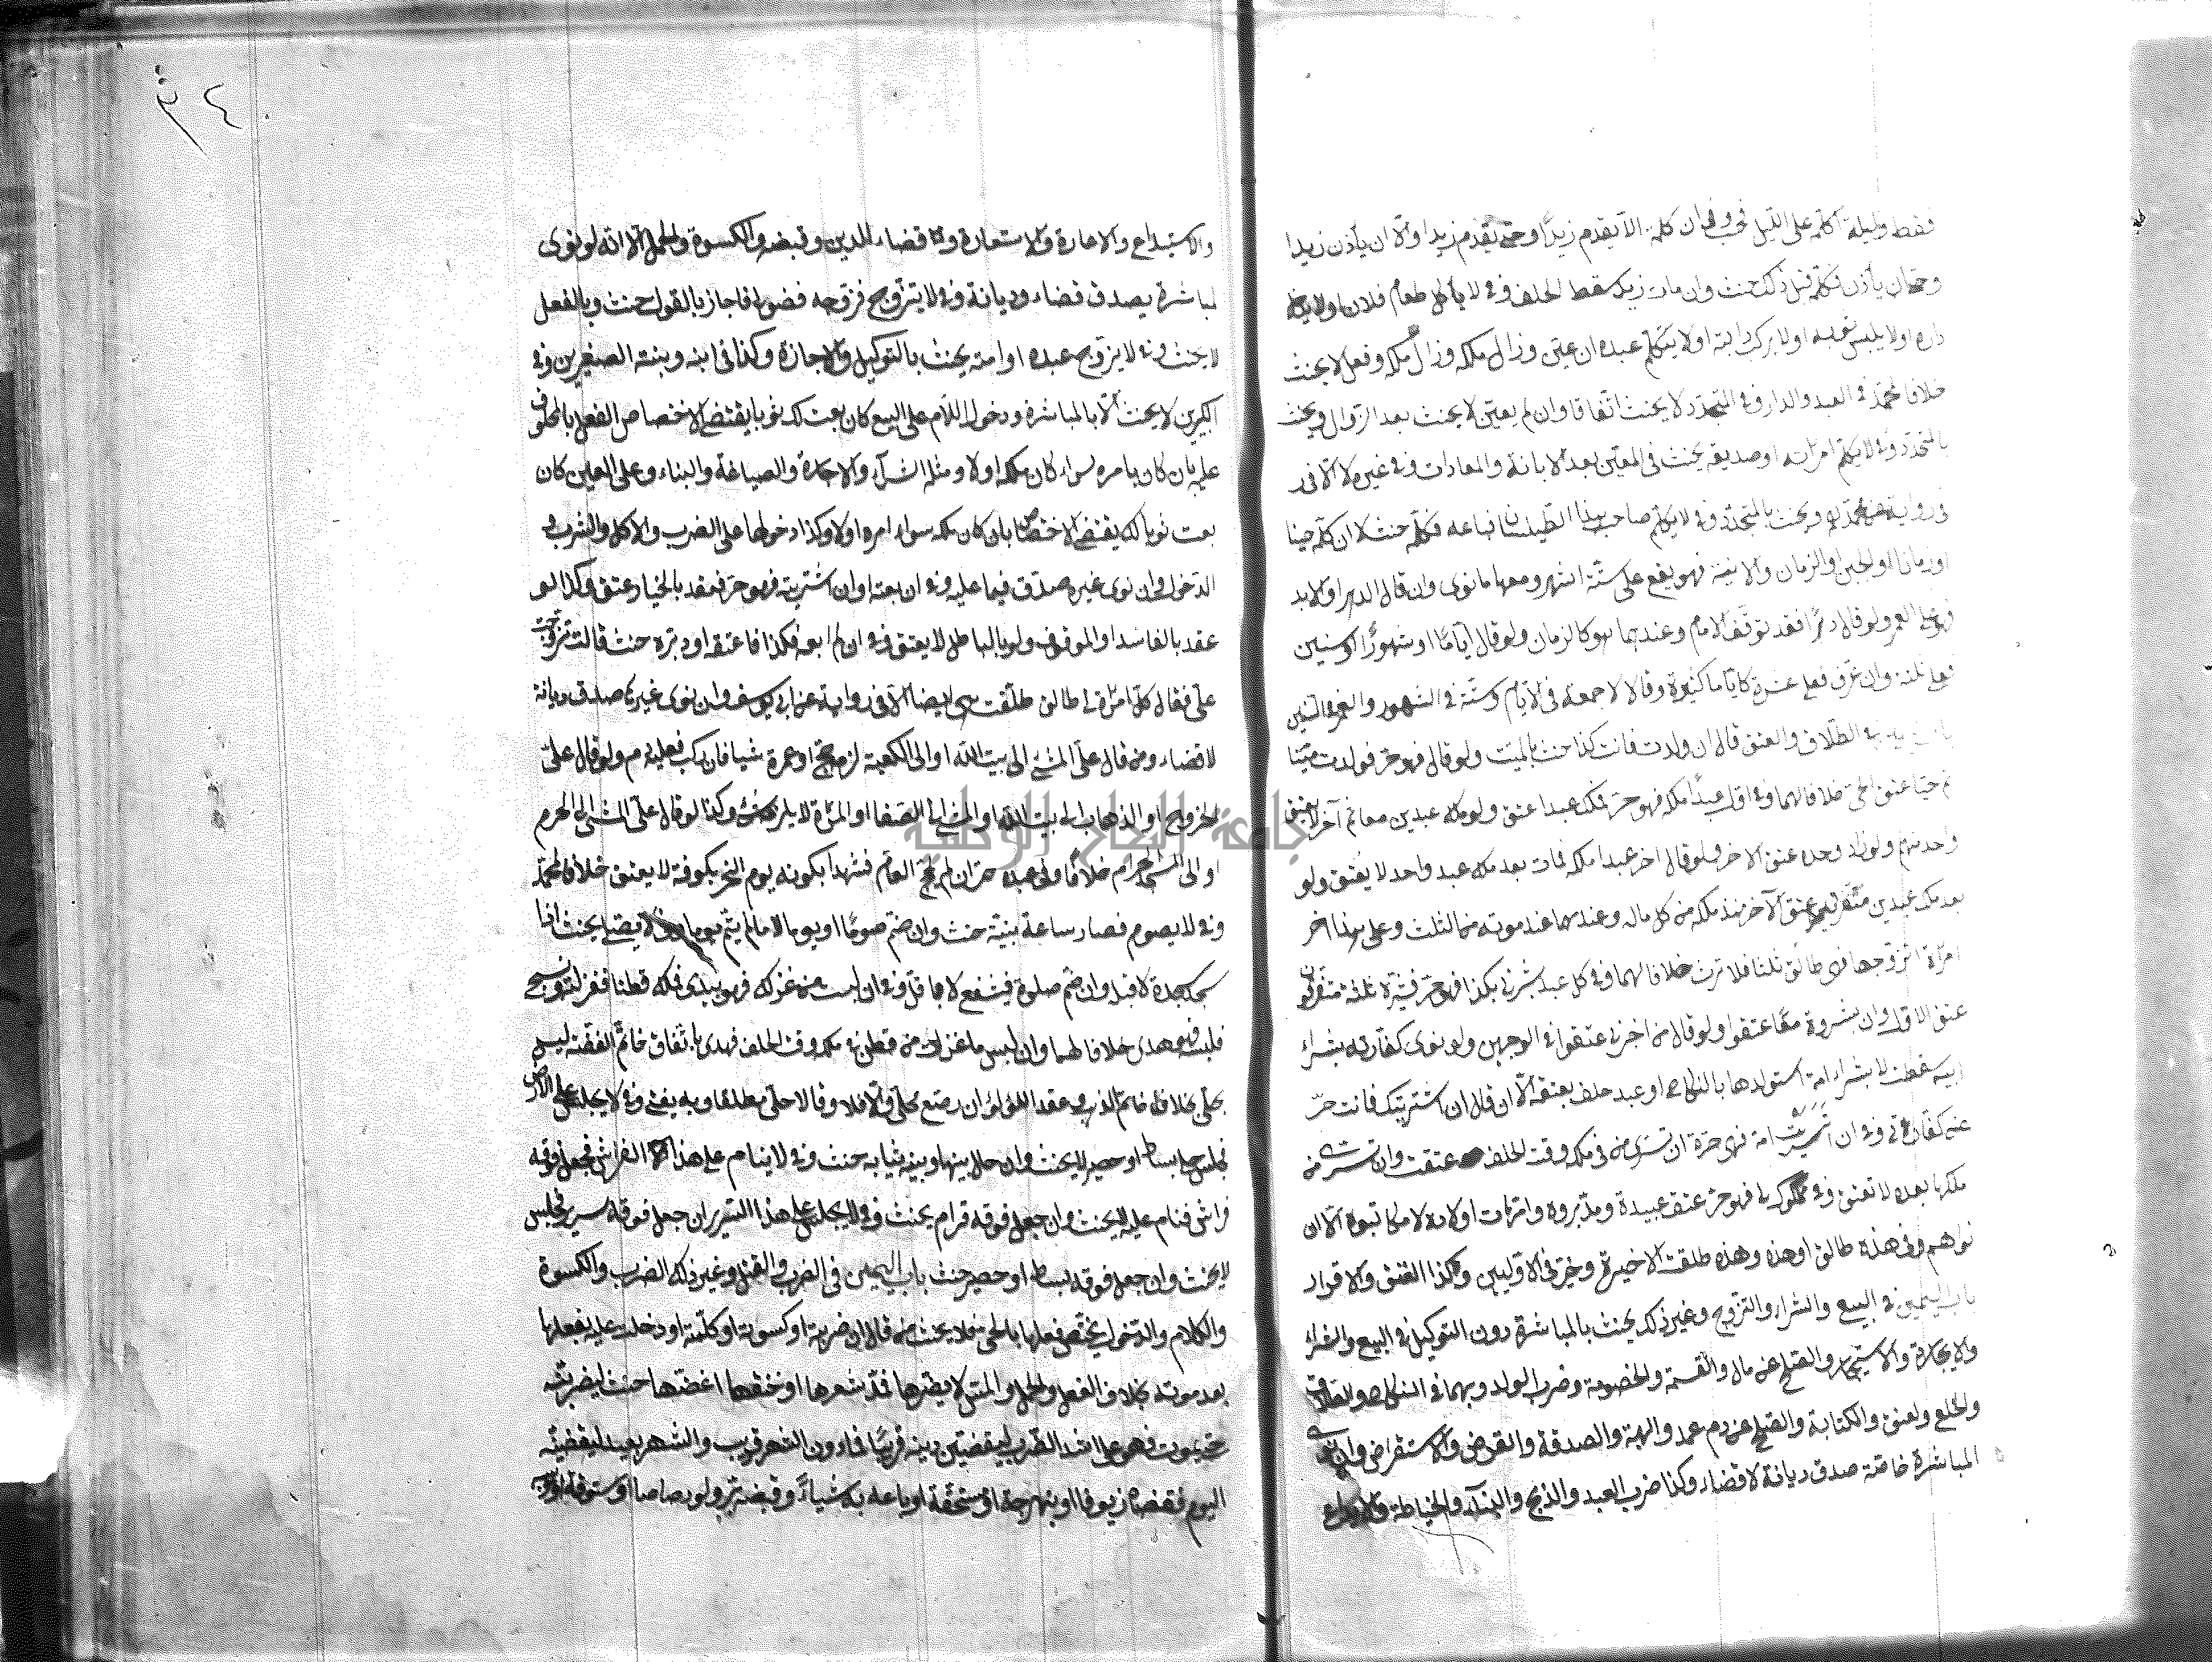 فقط وليلة اكلمه على الليل وفي ان كلمته الا ان يقدم زيد او حتى يقدم زيد او الا ان يأذن زيد او
حتى ان يأذن فكلمه قبل ذلك حنث وان مات زيد سقط الحلف وفي لا يأكل طعام فلان او لا يدخل
داره او لا يلبس ثوبه او لا يركب دابته او لا يتكلم عبده ان عين وزال ملكه وفعل لا يحنث
خلافا لمحمد في العبد والدار وفي المتجدد لا يحنث اتفاقا وان لم يعين لا يحنث بعد الزوال ويحنث
بالمتجدد وفي لا يكلم امرأته او صديقه يحنث في المعين بعد الابانة والمعادات وفي غيره لا الا في
في رواية عن محمد ويحنث بالمتجدد وفي لا يكلم صاحب هذا الطيلسان فباعه فكلمه حنث لا اكلمه حينا
او زمانا او الحين او الزمان ولا نية فهو يقع على ستة اشهر ومعها ما نوى وان قال الدهر او الابد
فهو على العمر ولو قال دهرا فقد توقف الامام وعندهما هو كالزمان ولو قال اياما او شهورا او سنين
فعلى ثلثة وان عرف فعلى عشرة كاياما كثيرة وقالا لا جمعة في الايام وسنة في الشهور والعمر في السنين
باب اليمين في الطلاق والعتق قال ان ولدت فانت كذا حنث بالميت ولو قال فهو حر فولدت ميتا
ثم حيا عتق الحي خلافا لهما وفي اول عبد املكه فهو حر فملك عبدا عتق ولو ملك عبدين معا ثم آخر لا يعتق
واحد منهم ولو زاد وحده عتق الآخر ولو قال آخر عبد املكه فمات بعد ملك عبد واحد لا يعتق ولو
بعد ملك عبدين متفرقين عتق الآخر منذ ملكه من كل ماله وعندهما عند موته من الثلث وعلى هذا آخر
امرأة اتزوجها فهي طالق ثلثا فلا ترث خلافا لهما وفي كل عبد بشرني بكذا فهو حر فبشره ثلثة متفرقون
عتق الاول وان بشروه معا عتقوا ولو قال من اخبرني عتقوا في الوجهين ولو نوى كفارته بشراء
ابيه سقطت لا بشراء امة استولدها بالنكاح او عبد حلف بعتقه الا ان قال ان اشتريتك فانت حر
عن كفارتي وفي ان تسريت امة فهي حرة ان تسرى من في ملكه وقت الحلف عتقت وان تسرى من
ملكها بعده لا تعتق وفي كل مملوك لي فهو حر عتق عبيده ومدبروه وامهات اولاده لا مكاتبوه الا ان
نواهم وفي هذه طالق او هذه وهذه طلقت الاخيرة وخير في الاوليين وكذا العتق والاقرار
باب اليمين في البيع والشراء والتزوج وغير ذلك يحنث بالمباشرة دون التوكيل في البيع والشراء
والاجارة والاستيجار والصلح عن مال والقسمة والخصومة وضرب الولد وبهما في النكاح والطلاق
والخلع والعتق والكتابة والصلح عن دم عمد والهبة والصدقة والقرض والاستقراض وان نوى
المباشرة خاصة صدق ديانة لا قضاء وكذا ضرب العبد والذبح والبناء والخياطة والايداع
والاستيداع والاعارة والاستعارة وقضاء الدين وقبضه والكسوة والحمل الا انه لو نوى
المباشرة يصدق قضاء وديانة وفي لا يتزوج فزوجه فضولي فاجاز بالقول حنث وبالفعل
لا يحنث وفي لا يزوج عبده او امته يحنث بالتوكيل والاجازة وكذا في ابنه وبنته الصغيرين وفي
الكبيرين لا يحنث الا بالمباشرة ودخول اللام على البيع كان بعت لك ثوبا يقتضي اختصاص الفعل بالمحلوف
عليه بان كان بامره سواء كان ملكه او لا ومثله الشراء والاجارة والصياغة والبناء وعلى العين كان
بعت ثوبا لك يقتضي اختصاصها بان كان ملكه سواء امره او لا وكذا دخولها على الضرب والاكل والشرب و
الدخول وان نوى غيره صدق فيما عليه وفي ان بعته او ان اشتريته فهو حر فعقد بالخيار عتق وكذا لو
عقد بالفاسد او الموقوف ولو بالباطل لا يعتق وفي ان لم ابعه فكذا فاعتقه او دبره حنث قالت تزوجت
علي فقال كل امرأة لي طالق طلقت هي ايضا الا في رواية عن ابي يوسف وان نوى غيرها صدق ديانة
لا قضاء ومن قال علي المشي الى بيت الله او الى الكعبة لزمه حج او عمرة مشيا فان ركب فعليه دم ولو قال علي
الخروج او الذهاب الى بيت الله او المشي الى الصفا او المروة لا يلزمه شيء وكذا لو قال علي المشي الى الحرم
او الى المسجد الحرام خلافا ولو عبده حر ان لم يحج العام فشهدا بكونه يوم النحر بكوفة لا يعتق خلافا لمحمد
وفي لا يصوم فصام ساعة بنية حنث وان ضم صوما او يوما لا ما لم يتم يوما وفي لا يصلي يحنث اذا
سجد سجدة لا قبله وان ضم صلوة فبشفع لا باقل وفي ان لبست من غزلك فهو هدي فملك قطنا فغزلته ونسج
فلبسه فهو هدي خلافا لهما وان لبس ما غزلت من قطن في ملكه وقت الحلف فهدي باتفاق خاتم الفضة ليس
بحلي بخلاف خاتم الذهب وعقد اللؤلؤ ان رصع بحلي والا فلا وقالا حلي مطلقا وبه يفتى وفي لا يجلس على الارض
فجلس على بساط او حصير لا يحنث وان حال بينها وبينه ثيابه حنث وفي لا ينام على هذا الفراش فجعل فوقه
فراش فنام عليه لا يحنث وان جعل فوقه قرام يحنث وفي لا يجلس على هذا السرير ان جعل فوقه سرير فجلس
لا يحنث وان جعل فوقه بساط او حصير حنث باب اليمين في الضرب والقتل وغير ذلك الضرب والكسوة
والكلام والدخول يختص فعلها بالحي فلا يحنث من قال ان ضربته او كسوته او كلمته او دخلت عليه بفعلها
بعد موته بخلاف الغسل والحمل والمس لا يضربها فمد شعرها او خنقها او عضها حنث ليضربنه
حتى يموت فهو على اشد الضرب ليقضين دينه قريبا فما دون الشهر قريب والشهر بعيد ليقضينه
اليوم فقضاه زيوفا او نبهرجة او مستحقة او باعه به شيئا وقبضه بر ولو رصاصا او ستوقة او وهبه